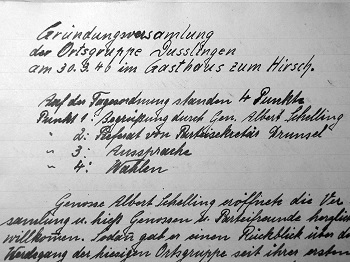 Gründungsversamlung
der Ortsgruppe Dusslingen
am 30.3.46 im Gasthaus zum Hirsch.
Auf der Tagesordnung standen 4 Punkte
Punkt 1: Begrüßung durch Gen. Albert Schelling
" 2: Referat von Parteisekretär Drunsel
" 3: Aussprache
" 4: Wahlen
Genosse Albert Schelling eröffnete die Ver
samlung u. hieß Genossen u. Parteifreunde herzlich
willkommen. Sodan gab er einen Rückblick über den
Werdegang der hiesigen Ortsgruppe seit ihrer ersten